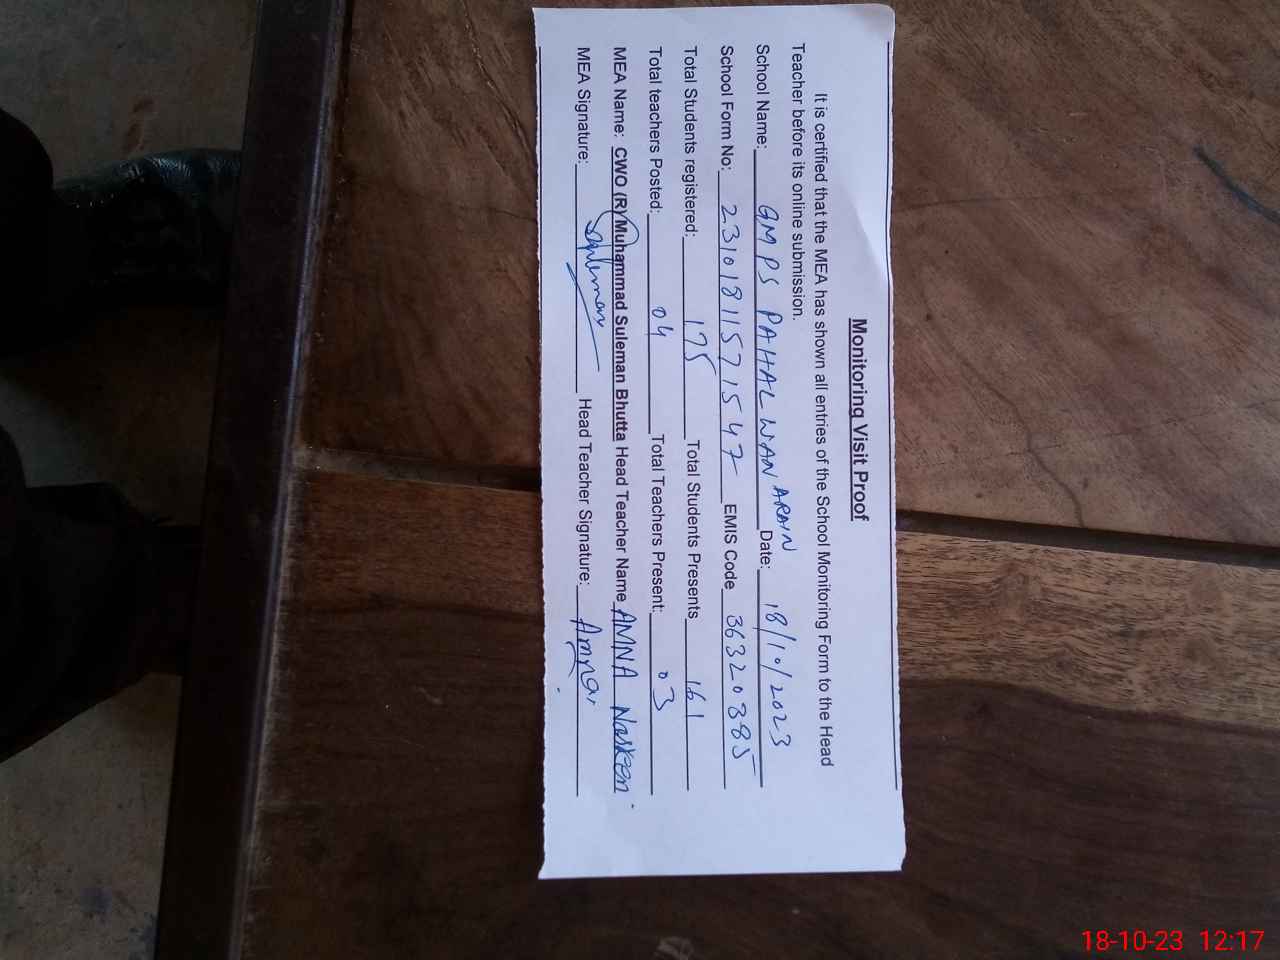 Monitoring Visit Proof
It is certified that the MEA has shown all entries of the School Monitoring Form to the Head
Teacher before its online submission.
School Name: GMPS PAHALWAN ARAIN Date: 18/10/2023
School Form No: 23101811571547 EMIS Code 36320385
Total Students registered: 175 Total Students Presents 161
Total teachers Posted: 04 Total Teachers Present: 03
MEA Name: CWO (R) Muhammad Suleman Bhutta Head Teacher Name AMNA Nasreen
MEA Signature: Suleman Head Teacher Signature: Amna
18-10-23 12:17